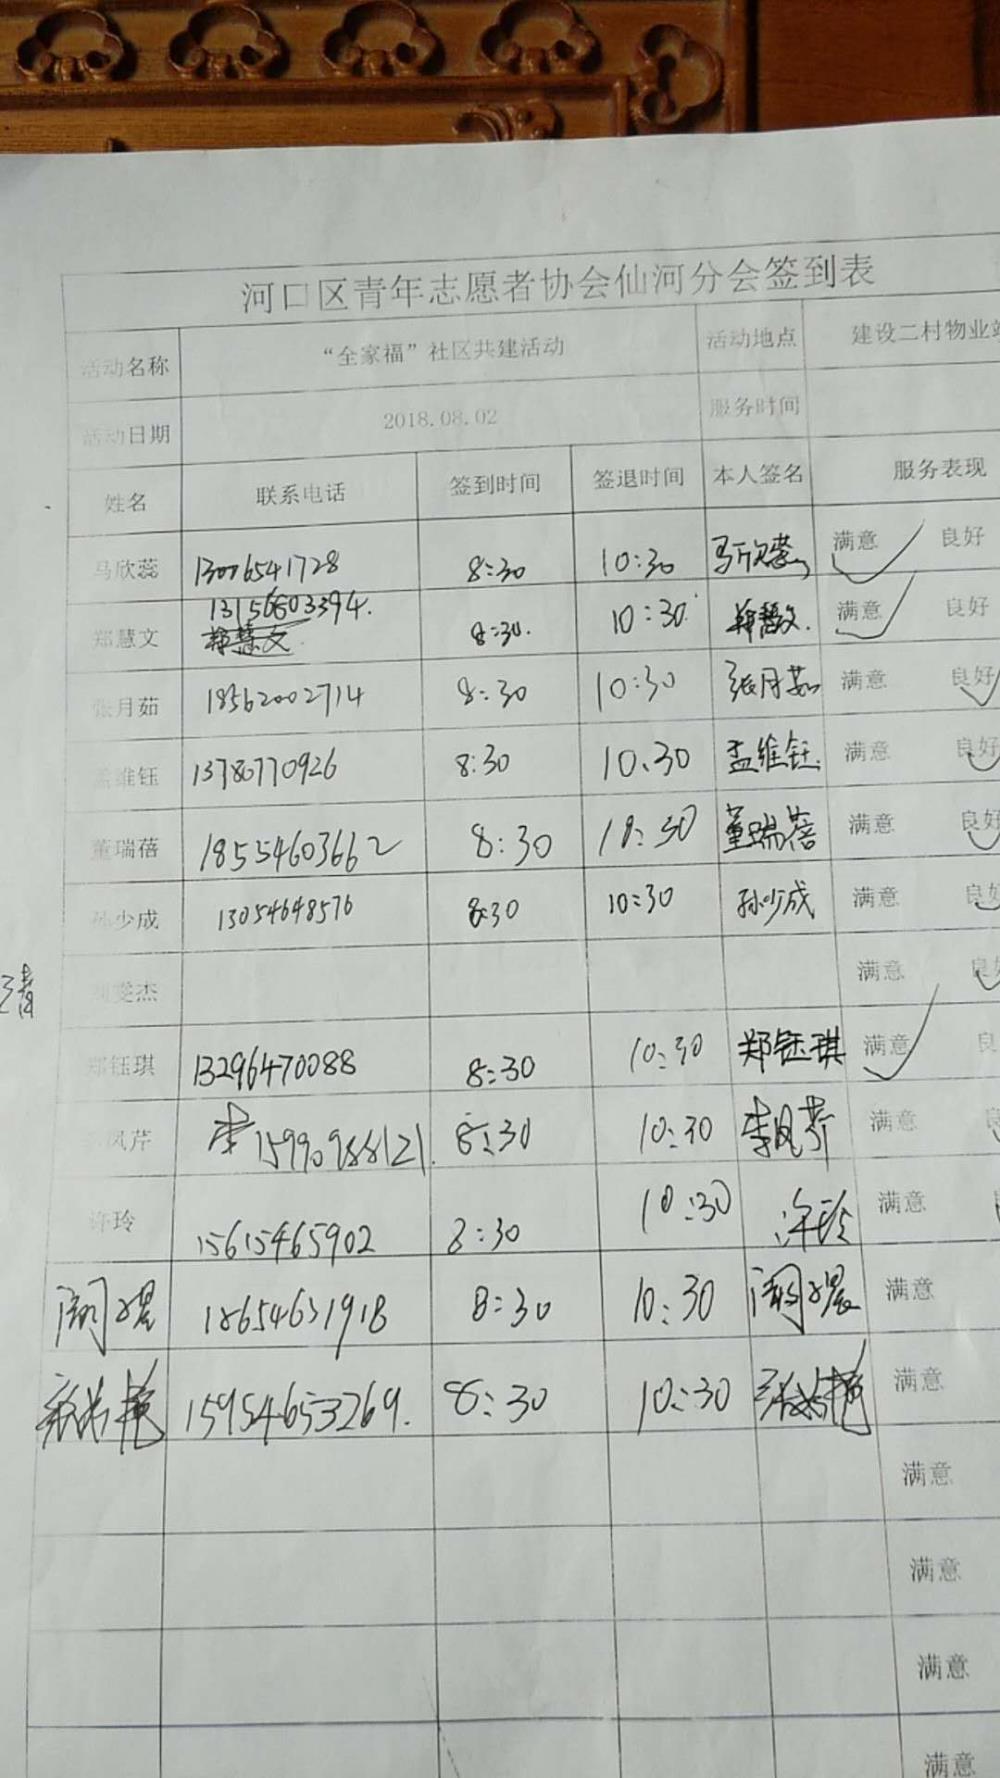 河口区青年志愿者协会仙河分会签到表
活动名称 “全家福”社区共建活动 活动地点 建设二村物业
活动日期 2018.08.02 服务时间
姓名 联系电话 签到时间 签退时间 本人签名 服务表现
马欣蕊 13006541728 8:30 10:30 马欣蕊 满意 良好
郑慧文 13156603394. 郑慧文 8:30. 10:30. 郑慧文. 满意 良好
张月茹 18562002714 8:30 10:30 张月茹 满意 良好
孟维钰 13780770926 8:30 10.30 孟维钰 满意 良好
董瑞蓓 18554603662 8:30 10:30 董瑞蓓 满意 良好
孙少成 13054648576 8:30 10:30 孙少成 满意 良好
雯杰 满意 良好
郑钰琪 13296470088 8:30 10:30 郑钰琪 满意 良
李凤芹 李 15990988121. 8:30 10:30 李凤芹 满意
许玲 15615465902 8:30 10:30 许玲 满意
18654631918 8:30 10:30 满意
15954653269. 8:30 10:30 满意
满意
满意
满意
满意